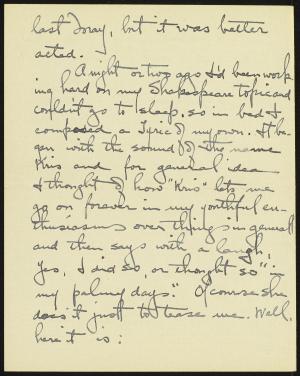 last Foray, but it was better
acted.
A night or two ago I'd been work
ing hard on my Shakespeare topic and
couldn't go to sleep, so in bed I
composed a Lyric of my own. It be-
gan with the sound of the name
Kris and for general idea
I thought of how "Kris" lets me
go on forever in my youthful en-
thusiasms over things in general
and then says with a laugh,
"Yes, I did so, or thought so "in
my palmy days." Of course she
does it just to tease me. Well,
here it is: